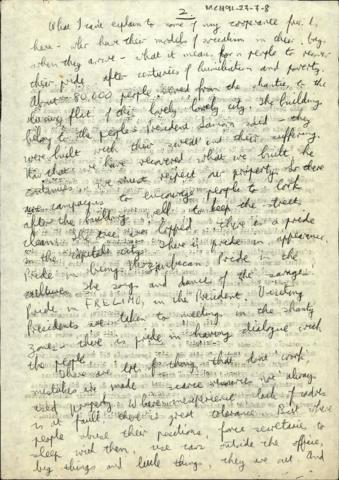 2.
MCH91-23-7-8
What I can't explain to some of my cooperante friends
here - who have their models of socialism in their bag
when they arrive - what it means for a people to recover
their pride after centuries of humiliation and poverty.
About 80,000 people moved from the shanties to the
flats of this lovely lovely city. The buildings
belong to the people President Samora said - they
were built with their sweat and their suffering.
we have recovered what we built he
continues. We must respect our property. So there
are campaigns to encourage people to look
after the buildings, to keep the streets
clean. tree lopped - there is a pride
in the capital city. There is pride in appearance.
Pride in being Mozambican. Pride in the
culture the song and dance of the
Pride in FRELIMO, in the President. Visiting
Presidents are taken to meetings in the shanty
zones - there is pride in having dialogue with
the people.
There are lots of things that don't work
mistakes are made - scarce resources aren't always
used properly. Where inexperience lack of cadres
is at fault there is great tolerance. But where
people abuse their positions, force secretaries to
sleep with them, use cars outside the office,
big things and little things, they are out. And